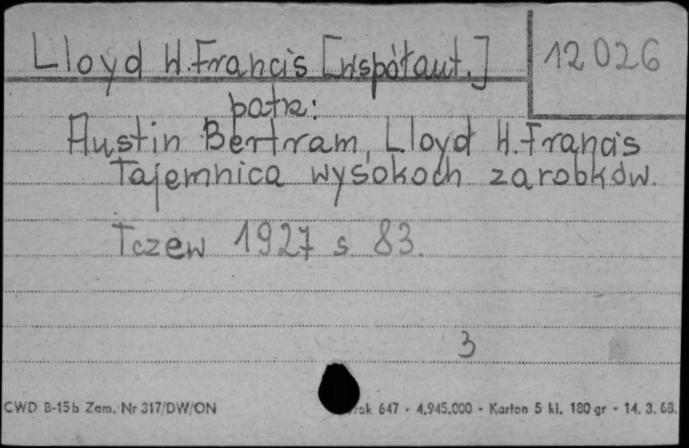 Lloyd W. Francis [współaut.]
12026
patrz:
Austin Bertram, Lloyd W. Francis
Tajemnica wysokoch zarobków.
Tczew 1927 s. 83.
3
CWD B-15b Zam. Nr 317/DW/ON 647 - 4.945.000 - Karton 5 kl. 180 gr - 14. 3. 68.